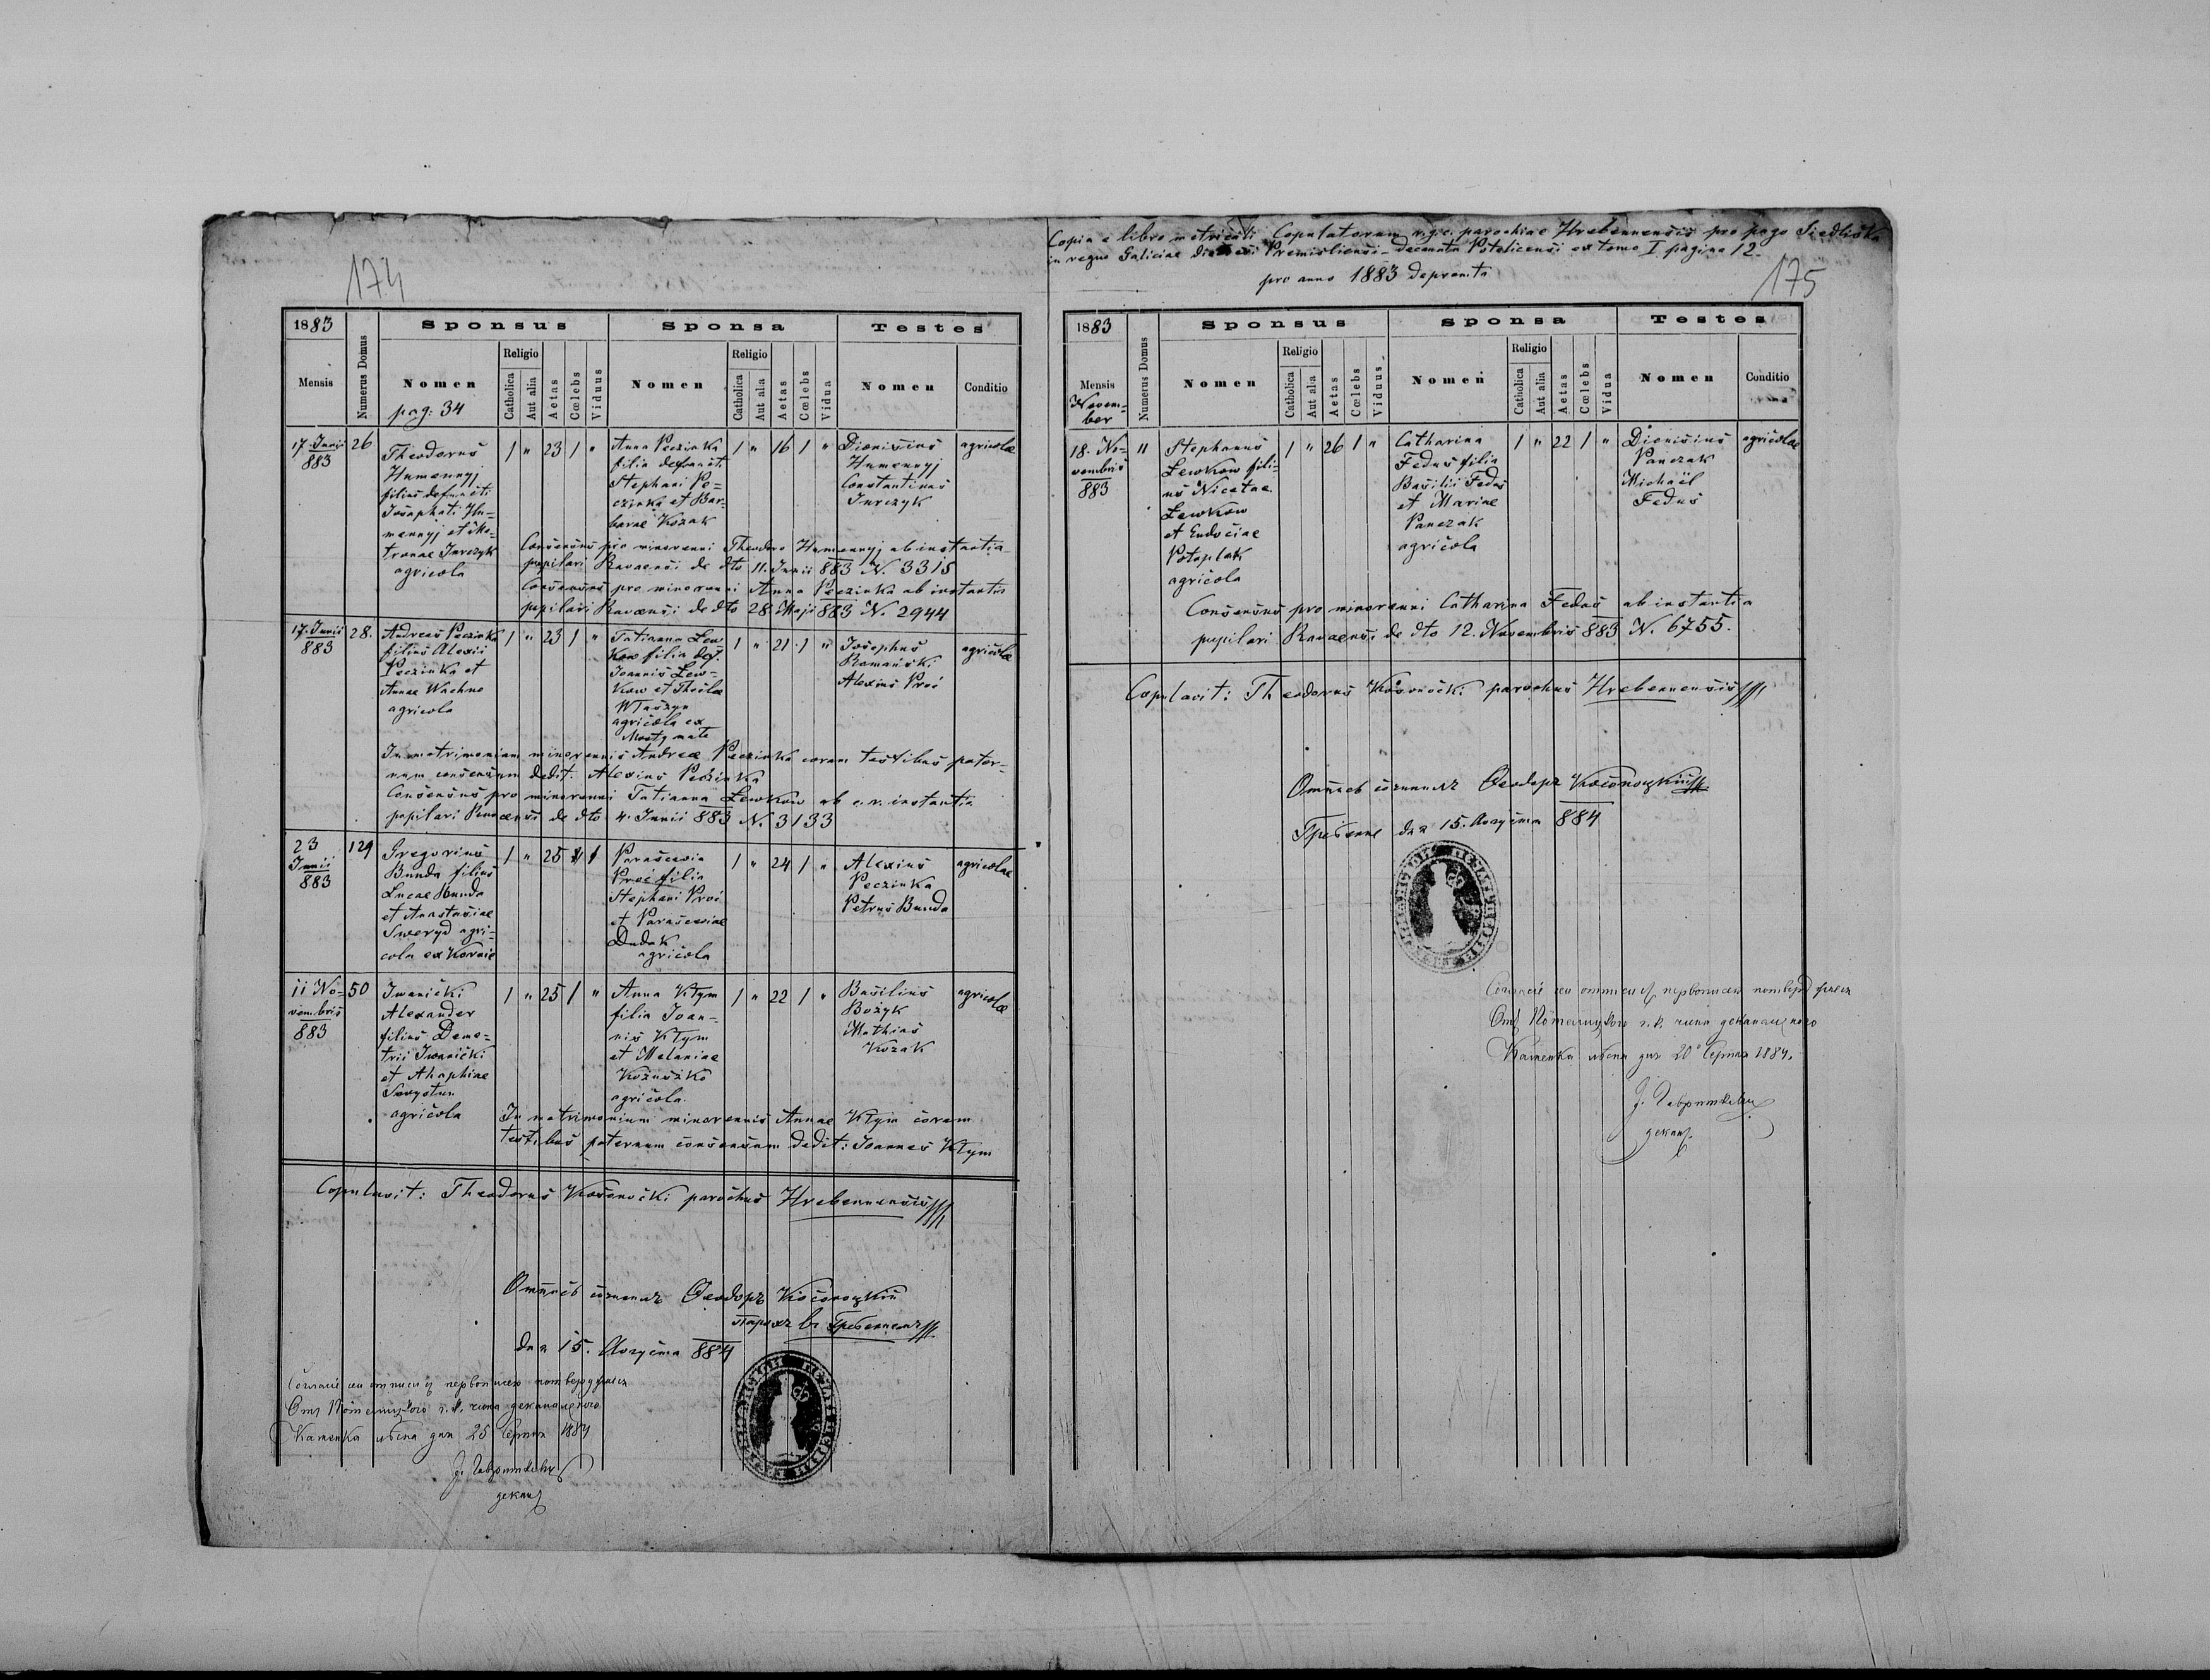 174
1883
Sponsus
Sponsa
Testes
Mensis
Numerus Domus
Nomen
Religio
Catholica
Aut alia
Aetas
Cœlebs
Viduus
Nomen
Religio
Catholica
Aut alia
Aetas
Cœlebs
Vidua
Nomen
Conditio
pag: 34
17. Junii
883
26
Theodorus
Humennyj
filius defuncti
Josaphati Hu-
mennyj et
Jurczyk
agricola
1 " 23 1 "
Anna Peczinka
filia defuncti
Stephani Pe-
czinka et Bar-
barae Kozak
1 " 16 1 "
Dionisius
Humennyj
Constantinus
Jurczyk
agricolae
Consensus pro minorenni Theodoro Humennyj ab instantia
pupilari Ravaensi de dto 11. Junii 883 N. 3315
Consensus pro minorenni Anna Peczinka ab instantia
pupilari Ravaensi de dto 28. Maji 883 N. 2944
17. Junii
883
28.
Andreas Peczinka
filius Alexii
Peczinka et
Annae Wachno
agricola
1 " 23 1 "
Tatianna Lew
kow filia def.
Joannis Lew-
kow et Theclae
Wlaszyn
agricola ex
Mosty
1 " 21 1 "
Josephus
Romanski
Alexius Proć
agricolae
In matrimonium minorennis Andreae Peczinka coram testibus pater-
num consensum dedit: Alexius Peczinka
Consensus pro minorenni Tatianna Lewkow ab c. r. instantia
pupilari Ravaensi de dto 4. Junii 883 N. 3133
23
Junii
883
129
Gregorius
Bunda filius
Lucae Bunda
et Anastasiae
Sweryd agri-
cola ex Kornie
1 " 25 1
Parascevia
Proć filia
Stephani Proć
et Parasceviae
Dudak
agricola
1 " 24 1 "
Alexius
Peczinka
Petrus Bunda
agricolae
11 No-
vembris
883
50
Iwanicki
Alexander
filius Deme-
trii Iwanicki
et Ahaphiae
Swystun
agricola
1 " 25 1 "
Anna Klym
filia Joan-
nis Klym
et Melaniae
Kożuszko
agricola.
1 " 22 1 "
Basilius
Bożyk
Mathias
Kozak
agricolae
In matrimonium minorennis Annae Klym coram
testibus paternum consensum dedit: Joannes Klym
Copulavit: Theodorus Kosonocki parochus Hrebennensis
Ѳеодоръ Косоноцкій
парохъ въ Гребенномъ
дня 15. Августа 884
Каменка
дня 25 Серпня 1884
декан
Copia e libro metricali Copulatorum r. g. c. parochiae Hrebennensis pro pago Siedliska
in regno Galiciae dioecesi Premisliensi decanatu Potelicensi ex tomo I pagina 12.
pro anno 1883 deprompta
175
1883
Sponsus
Sponsa
Testes
Mensis
Numerus Domus
Nomen
Religio
Catholica
Aut alia
Aetas
Cœlebs
Viduus
Nomen
Religio
Catholica
Aut alia
Aetas
Cœlebs
Vidua
Nomen
Conditio
Novem-
ber
18. No-
vembris
883
11
Stephanus
Lewkow fili-
us Nicetae
Lewkow
et Eudociae
Potoplak
agricola
1 " 26 1 "
Catharina
Fedus filia
Basilii Fedus
et Mariae
Panczak
agricola
1 " 22 1 "
Dionisius
Panczak
Michaël
Fedus
agricolae
Consensus pro minorenni Catharina Fedus ab instantia
pupilari Ravaensi de dto 12. Novembris 883 N. 6755.
Copulavit: Theodorus Kosonocki parochus Hrebennensis
Ѳеодоръ Косоноцкій
Гребенне дня 15. Августа 884
Каменка дня 20 Серпня 1884.
декан